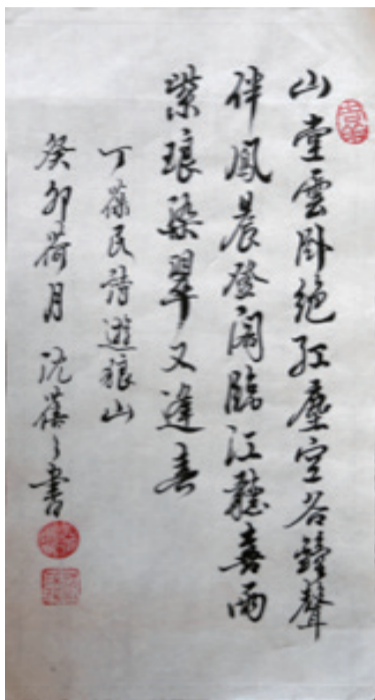 山堂雲臥絕紅塵空谷鐘聲
伴鳳晨登閣臨江聽喜雨
紫琅染翠又逢春
丁葆民詩遊狼山
癸卯荷月 沈書